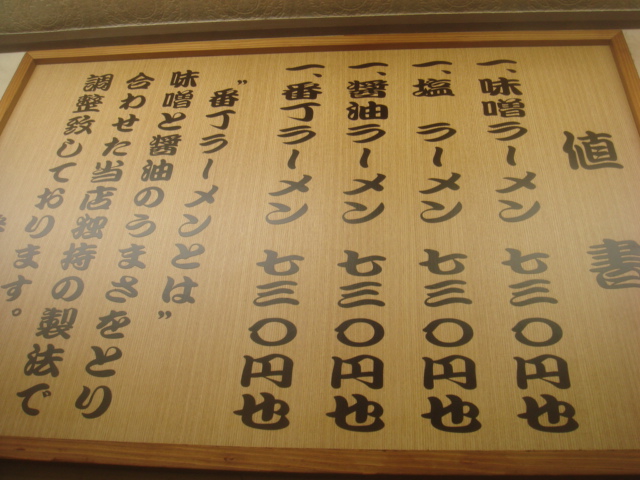 値書
一、味噌ラーメン 七三〇円也
一、塩 ラーメン 七三〇円也
一、醤油ラーメン 七三〇円也
一、番丁ラーメン 七三〇円也
"番丁ラーメンとは"
味噌と醤油のうまさをとり
合わせた当店独持の製法で
調整致しております。